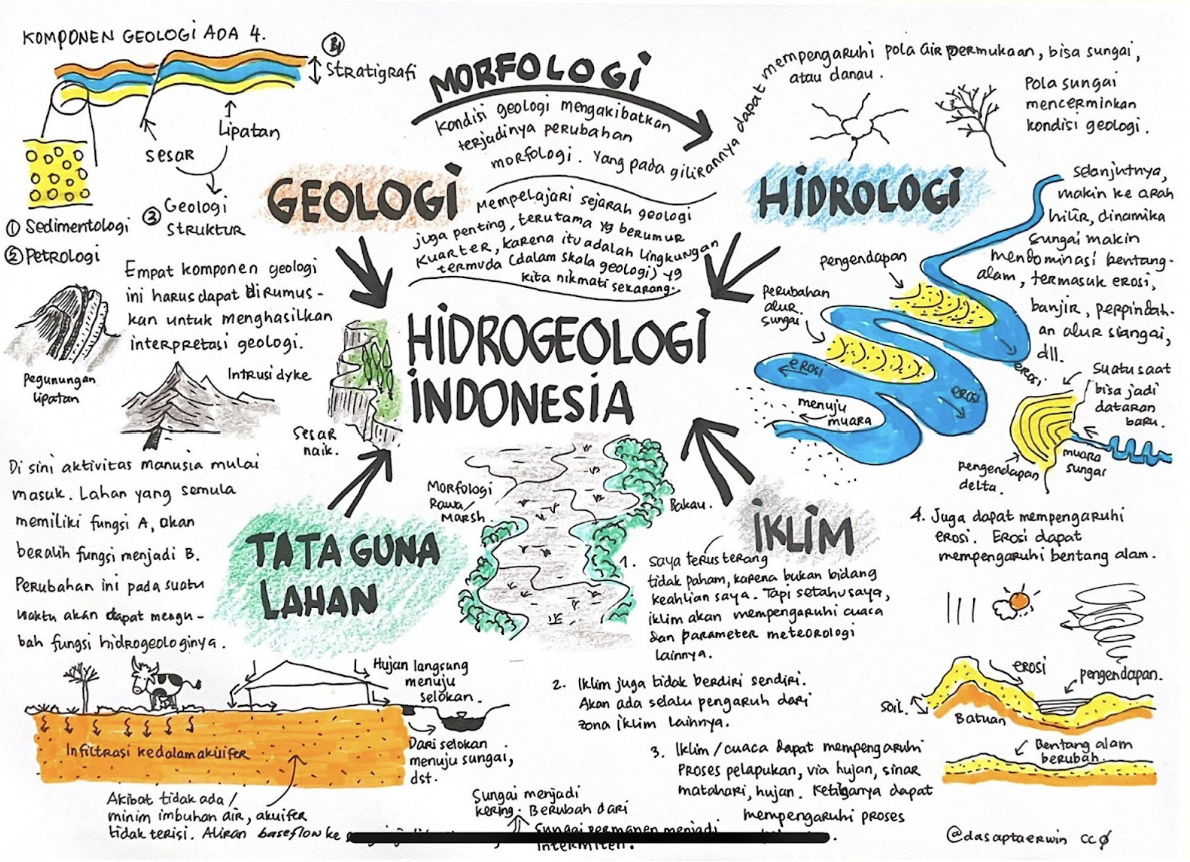 KOMPONEN GEOLOGI ADA 4.
Stratigrafi
Lipatan
sesar
① Sedimentologi
② Petrologi
③ Geologi
STRUKTUR
Empat komponen geologi
ini harus dapat dirumus-
kan untuk menghasilkan
interpretasi geologi.
Pegunungan
lipatan
Intrusi dyke
MORFOLOGI
Kondisi geologi mengakibatkan
terjadinya perubahan
morfologi. Yang pada gilirannya dapat mempengaruhi pola air permukaan, bisa sungai,
atau danau.
Pola sungai
mencerminkan
kondisi geologi.
GEOLOGI
Mempelajari sejarah geologi
juga penting, terutama yg berumur
Kuarter, karena itu adalah lingkungan
termuda (dalam skala geologi) yg
kita nikmati sekarang.
HIDROLOGI
selanjutnya,
makin ke arah
hilir, dinamika
sungai makin
mendominasi bentang-
alam, termasuk erosi,
banjir, perpindah-
an alur sungai,
dll.
pengendapan
Perubahan
alur
sungai
erosi
erosi
erosi
menuju
muara
suatu saat
bisa jadi
dataran
baru.
muara
sungai
pengendapan
delta.
HIDROGEOLOGI
INDONESIA
Sesar
naik.
Morfologi
Rawa/
Marsh.
Bakau.
TATA GUNA
LAHAN
Di sini aktivitas manusia mulai
masuk. Lahan yang semula
memiliki fungsi A, akan
beralih fungsi menjadi B.
Perubahan ini pada suatu
waktu akan dapat mengu-
bah fungsi hidrogeologinya.
Hujan langsung
menuju
selokan
Dari selokan
menuju sungai,
dst.
Infiltrasi kedalam akuifer
Akibat tidak ada/
minim imbuhan air, akuifer
tidak terisi. Aliran baseflow ke
Sungai menjadi
kering. Berubah dari
Sungai permanen menjadi
intermiten.
IKLIM
1. Saya terus terang
tidak paham, karena bukan bidang
keahlian saya. Tapi setahu saya,
iklim akan mempengaruhi cuaca
dan parameter meteorologi
lainnya.
2. Iklim juga tidak berdiri sendiri.
Akan ada selalu pengaruh dari
zona iklim lainnya.
3. Iklim/cuaca dapat mempengaruhi
Proses pelapukan, via hujan, sinar
matahari, hujan. Ketiganya dapat
mempengaruhi proses
4. Juga dapat mempengaruhi
erosi. Erosi dapat
mempengaruhi bentang alam.
erosi
pengendapan.
soil.
Batuan
Bentang alam
berubah.
@dasaptaerwin CC0